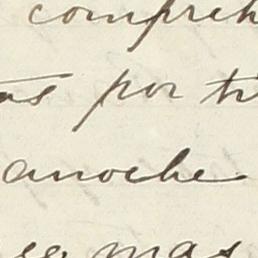 compreh
as por tr
anoche
mas